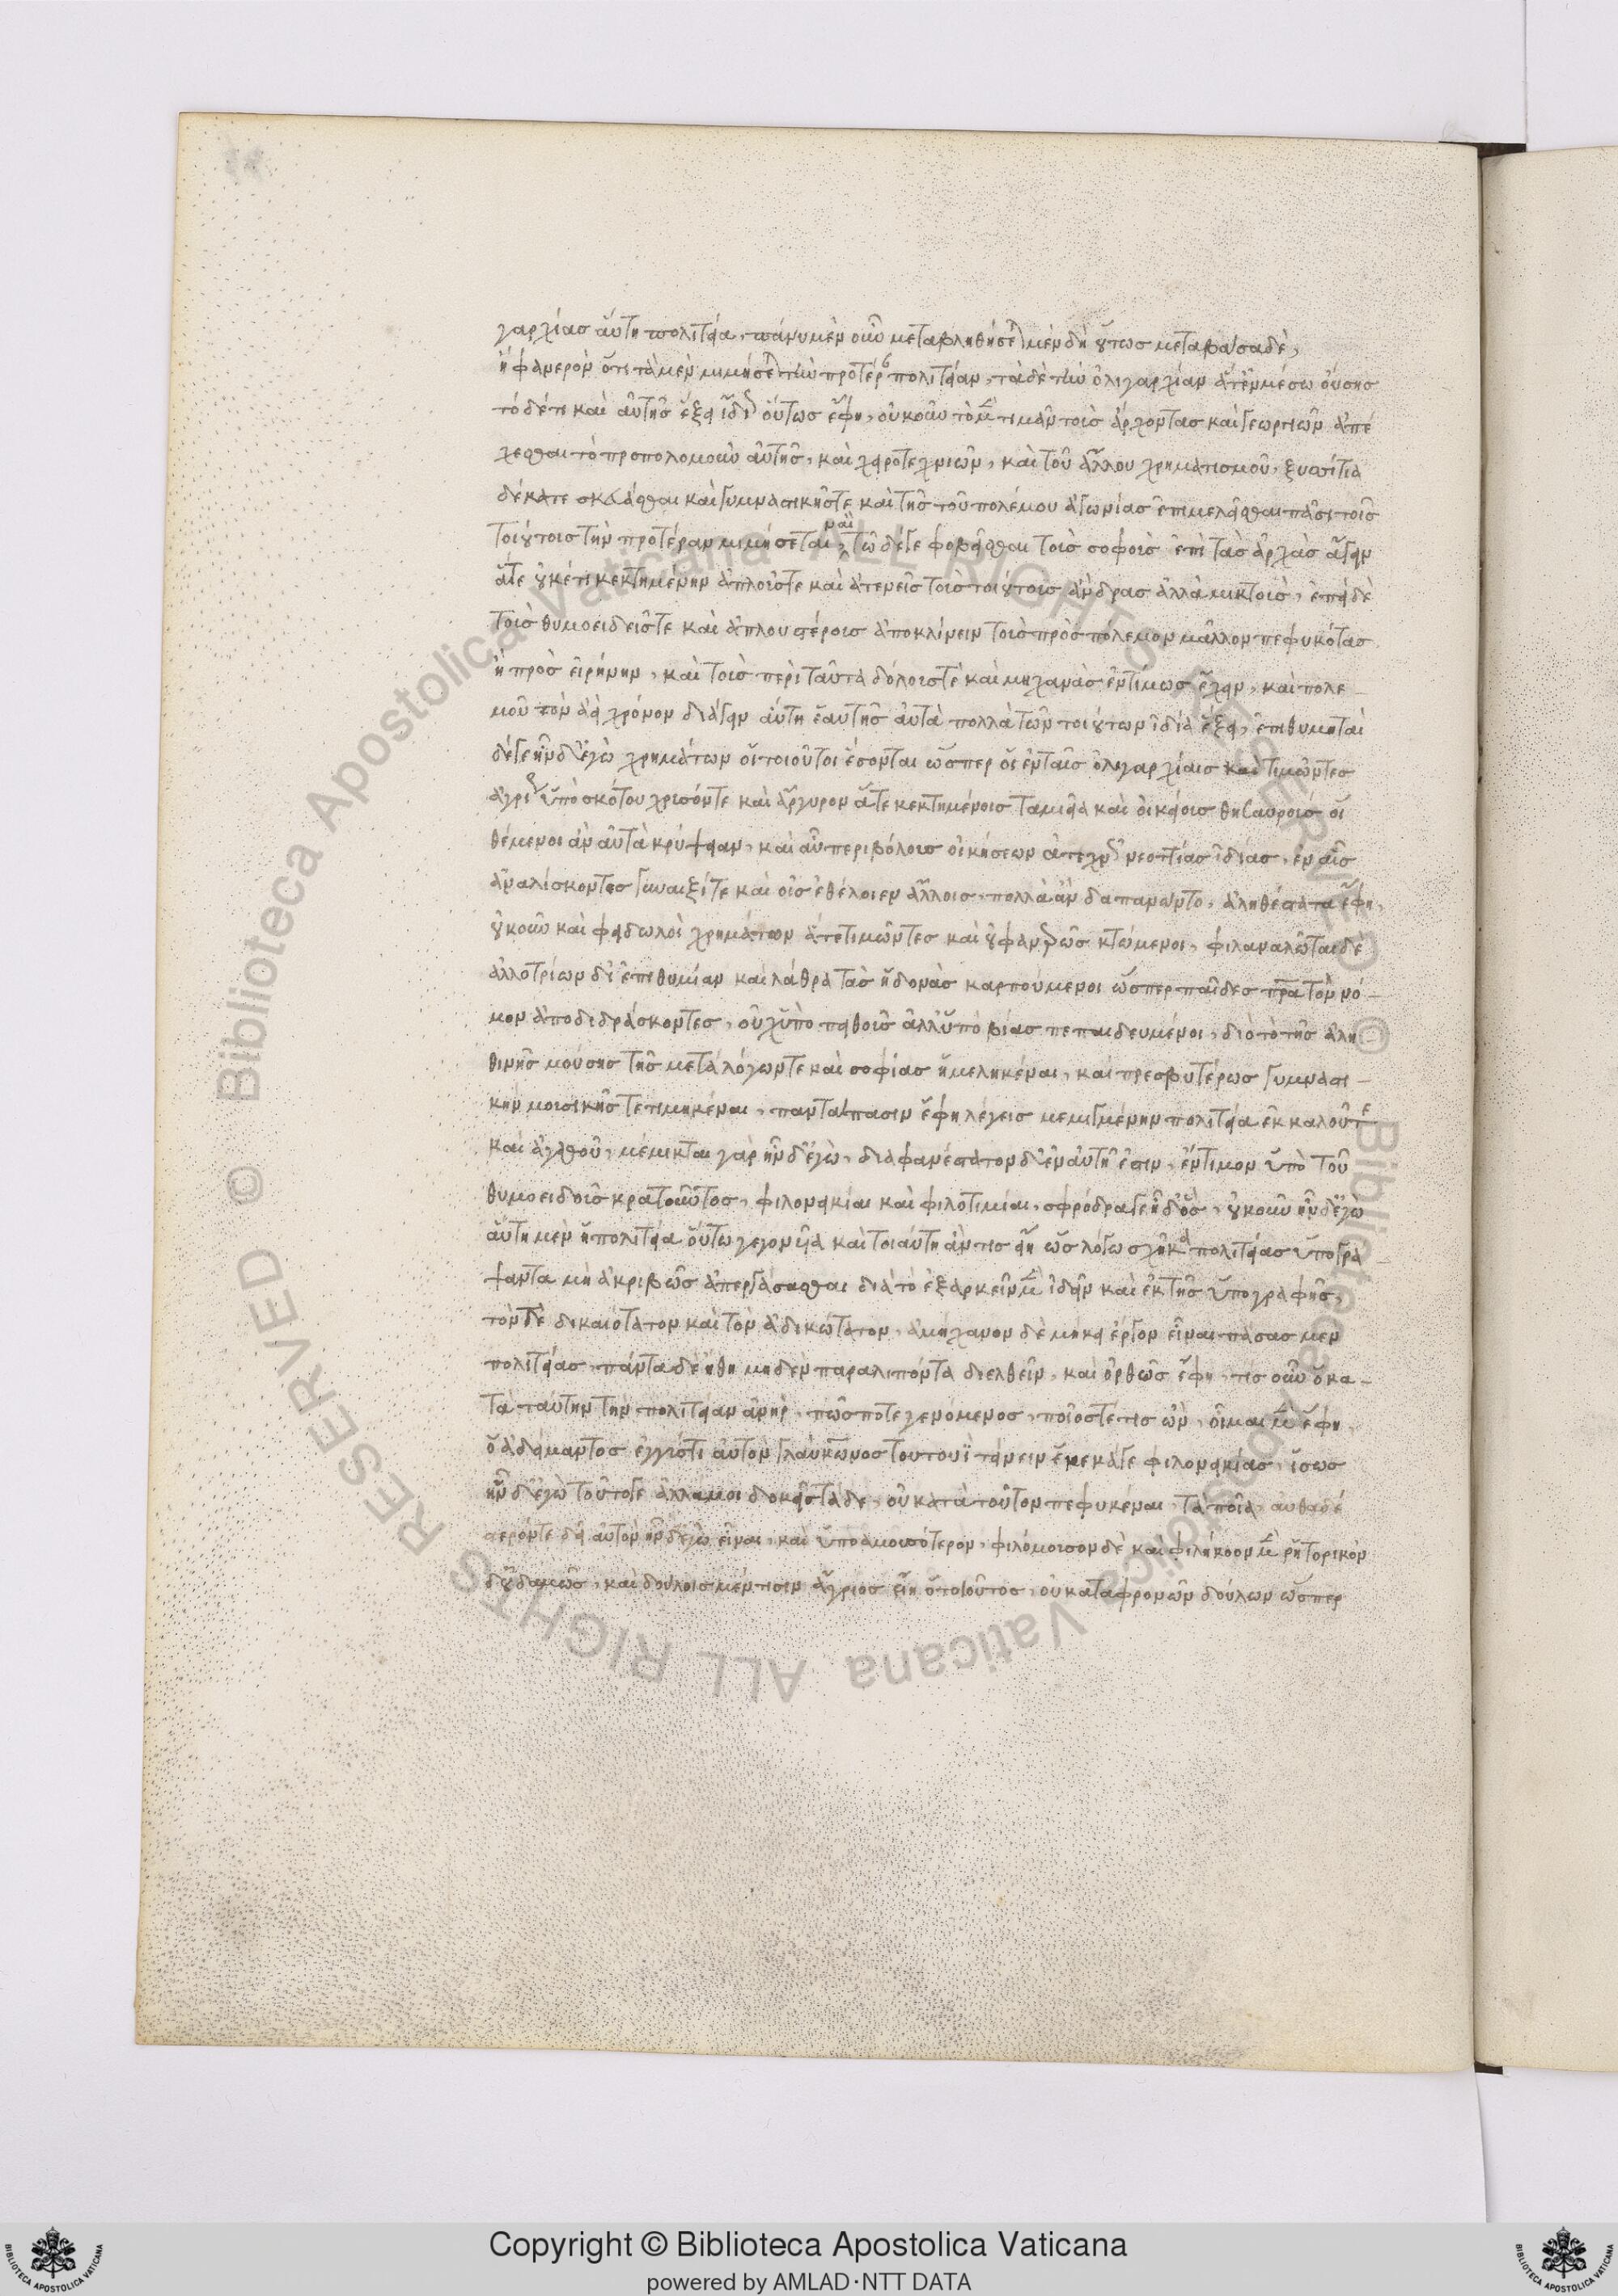 γαρχίας αὕτη πολιτεία, πάνυ μὲν οὖν μεταβληθήσεται μὲν δὴ οὕτως μεταβᾶσα δὲ,
ἢ φανερὸν ὅτι τὰ μὲν μιμήσεται τὴν προτέραν πολιτείαν, τὰ δὲ τὴν ὀλιγαρχίαν ἅτ' ἐν μέσω οὖσης
τὸ δέ τι καὶ αὑτῆς ἕξει ἴδιον οὕτως ἔφη, οὐκοῦν τῶ μὲν τιμᾶν τοὺς ἄρχοντας καὶ γεωργιῶν ἀπέ
χεσθαι τὸ προπολεμοῦν αὐτῆς, καὶ χειροτεχνιῶν, καὶ τοῦ ἄλλου χρηματισμοῦ, ξυσσίτια
δὲ κατεσκευάσθαι καὶ γυμναστικῆς τε καὶ τῆς τοῦ πολέμου ἀγωνίας ἐπιμελεῖσθαι πᾶσι τοῖς
τοιούτοις τὴν προτέραν μιμήσεται, ναὶ τῶ δέ γε φοβεῖσθαι τοὺς σοφοὺς ἐπὶ τὰς ἀρχὰς ἄγειν
ἅτε οὐκέτι κεκτημένην ἁπλούς τε καὶ ἀτενεῖς τοὺς τοιούτους ἄνδρας ἀλλὰ μικτοὺς, ἐπὶ δὲ
τοὺς θυμοειδεῖς τε καὶ ἁπλουστέρους ἀποκλίνειν τοὺς πρὸς πόλεμον μᾶλλον πεφυκότας
ἢ πρὸς εἰρήνην, καὶ τοὺς περὶ ταῦτα δόλους τε καὶ μηχανὰς ἐντίμως ἔχειν, καὶ πολε
μοῦντον ἀεὶ χρόνον διάγειν αὕτη ἑαυτῆς αὐτὰ πολλὰ τῶν τοιούτων ἴδια ἕξει, ἐπιθυμηταὶ
δέ γε ἦν δ' ἐγὼ χρημάτων οἱ τοιοῦτοι ἔσονται ὥσπερ οἱ ἐν ταῖς ὀλιγαρχίαις καὶ τιμῶντες
ἀγρίως ὑπὸ σκότου χρυσόν τε καὶ ἄργυρον ἅτε κεκτημένοις ταμιεῖα καὶ οἰκείους θησαυροὺς οἷ
θέμενοι ἂν αὐτὰ κρύψειαν, καὶ αὖ περιβόλους οἰκήσεων ἀτεχνῶς νεοττίας ἰδίας, ἐν αἷς
ἀναλίσκοντες γυναιξί τε καὶ οἷς ἐθέλοιεν ἄλλοις, πολλὰ ἂν δαπανῶντο, ἀληθέστατα ἔφη,
οὐκοῦν καὶ φειδωλοὶ χρημάτων ἅτε τιμῶντες καὶ οὐ φανερῶς κτώμενοι, φιλαναλωταὶ δὲ
ἀλλοτρίων δι' ἐπιθυμίαν καὶ λάθρα τὰς ἡδονὰς καρπούμενοι ὥσπερ παῖδες πρα τὸν νό
μον ἀποδιδράσκοντες, οὐχ ὑπὸ πειθοῦς ἀλλ' ὑπὸ βίας πεπαιδευμένοι, διὸ τὸ τῆς ἀλη
θινῆς μούσης τῆς μετὰ λόγων τε καὶ σοφίας ἠμεληκέναι, καὶ πρεσβυτέρως γυμναστι
κὴν μουσικῆς τετιμηκέναι, παντάπασιν ἔφη λέγεις μεμιγμένην πολιτεία ἐκ καλοῦ τε
καὶ ἀγαθοῦ, μέμικται γὰρ ἦν δ' ἐγὼ, διαφανέστατον δ' ἐν αὐτῆ ἐστιν, ἔντιμον ὑπὸ τοῦ
θυμοειδοῦς κρατοῦντος, φιλονεικίαι καὶ φιλοτιμίαι, σφόδρα γε ἦ δ' ὃς, οὐκοῦν ἦν δ' ἐγὼ
αὕτη μὲν ἡ πολιτεία οὕτω γεγονυῖα καὶ τοιαύτη ἄν τις εἴη ὡς λόγω σχῆμα πολιτείας ὑπογρά
ψαντα μὴ ἀκριβῶς ἀπεργάσασθαι διὰ τὸ ἐξαρκεῖν μὲν ἰδεῖν καὶ ἐκ τῆς ὑπογραφῆς,
τόν τε δικαιότατον καὶ τὸν ἀδικώτατον, ἀμήχανον δὲ μήκει ἔργον εἶναι πάσας μὲν
πολιτείας, πάντα δὲ ἤθη μηδὲν παραλιπόντα διελθεῖν, καὶ ὀρθῶς ἔφη, τίς οὖν ὁ κα
τὰ ταύτην τὴν πολιτείαν ἀνὴρ, πῶς ποτε γενόμενος, ποῖός τέ τις ὢν, οἶμαι μὲν ἔφη
ὁ ἀδείμαντος ἐγγύς τι αὐτὸν γλαύκωνος τουτουῒ τείνειν ἕνεκά γε φιλονεικίας, ἴσως
ἦν δ' ἐγὼ τοῦτό γε ἀλλά μοι δοκεῖ τάδε, οὐ κατὰ τοῦτον πεφυκέναι, τὰ ποῖα, αὐθαδέ
στερόν τε δεῖ αὐτὸν ἦν δ' ἐγὼ εἶναι, καὶ ὑποαμουσότερον, φιλόμουσον δὲ καὶ φιλήκοον μὲν ῥητορικὸν
δ' οὐδαμῶς, καὶ δούλοις μέν τισιν ἄγριος εἴη ὁ τοιοῦτος, οὐ καταφρονῶν δούλων ὥσπερ
Copyright © Biblioteca Apostolica Vaticana
powered by AMLAD·NTT DATA
© Biblioteca Apostolica Vaticana ALL RIGHTS RESERVED © Biblioteca Apostolica Vaticana ALL RIGHTS RESERVED